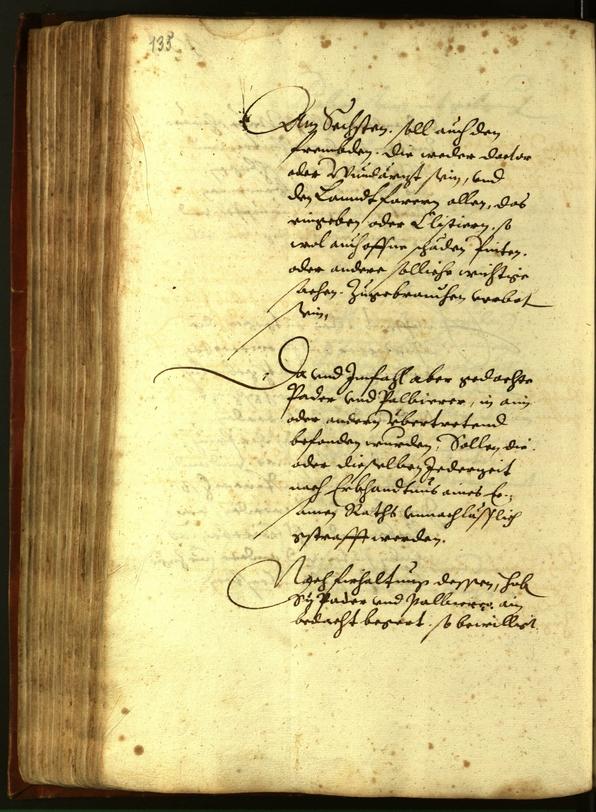 135
Am Sechsten. soll auch den
frembden. die weder doctor
oder Wundärzt sein, und
den Lanndtfarern allen, das
eingeben oder Clistiern. so
wol auch offne schäden
oder andere solliche wichtige
sachen. Zugebrauchen verbot
sein,
Da und Imfahl aber gedachte
Pader und Palbierer, in ain
oder andern ubertretend
befonden wurden, Sollen die
oder dieselben Jederzeit
nach Erkhandtnus aines Er:
samen Raths unnachläßlich
gestrafft werden.
Nach firhaltung dessen, hab
Sÿ Pader und Palbierer ain
bedacht begert. so bewilligt